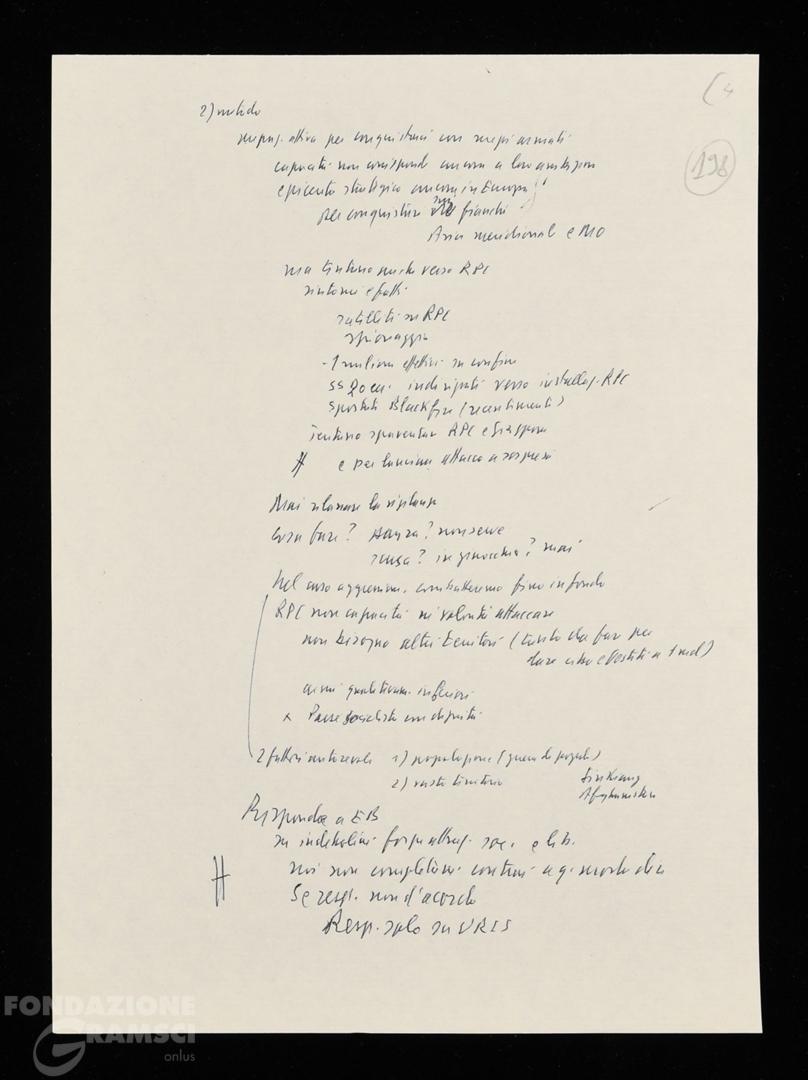 (4
198
2) metodo
prepar. attiva per conquistarci con mezzi armati
capacità non corrisponde ancora a loro ambizioni
epicentro strategico ancora in Europa
per conquistare fianchi
Asia meridional e MO
ma tentano anche verso RPC
sintomi e fatti
satelliti su RPC
spionaggio
- 1 milione effettivi su confine
SS 20 indirizzati verso installaz. RPC
spostati Blackfire (recentemente)
tentano spaventar RPC e Giappone
e per lanciare attacco a sorpresa
Mai rilassare la vigilanza
cosa fare? paura? non serve
in ginocchio? mai
Nel caso aggressione combatteremo fino in fondo
RPC non capacità né volontà attaccare
non bisogno altri territori (tanto da far per
dare cibo e vestiti a 1 md)
armi qualitativam. inferiori
x Paese socialista con dignità
2 fattori 1) popolazione (guerra di popolo)
2) vasto territorio
Sinkiang
Afghanistan
Risponde a EB
su
noi non completam. contrari
Se resp. non d'accordo
Resp. solo su URSS
FONDAZIONE
GRAMSCI
onlus